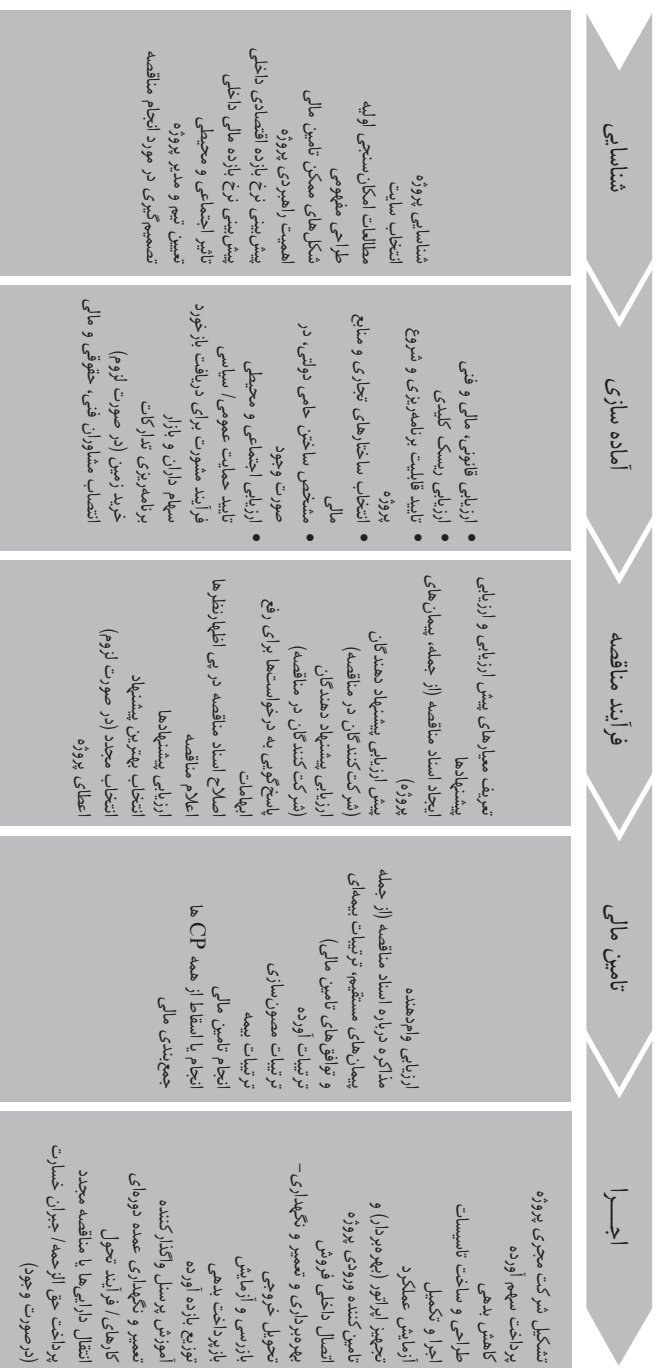 شناسایی
شناسایی پروژه
انتخاب سایت
مطالعات امکان‌سنجی اولیه
طراحی مفهومی
شکل‌های ممکن تامین مالی
اهمیت راهبردی پروژه
پیش‌بینی نرخ بازده اقتصادی داخلی
پیش‌بینی نرخ بازده مالی داخلی
تاثیر اجتماعی و محیطی
تعیین تیم و مدیر پروژه
تصمیم‌گیری در مورد انجام مناقصه
آماده سازی
• ارزیابی قانونی، مالی و فنی
• ارزیابی ریسک کلیدی
• تایید قابلیت برنامه‌ریزی و شروع
پروژه
• انتخاب ساختارهای تجاری و منابع
مالی
• مشخص ساختن حامی دولتی، در
صورت وجود
• ارزیابی اجتماعی و محیطی
تایید حمایت عمومی/ سیاسی
فرآیند مشورت برای دریافت بازخورد
سهام داران و بازار
برنامه‌ریزی تدارکات
خرید زمین (در صورت لزوم)
انتصاب مشاوران فنی، حقوقی و مالی
فرآیند مناقصه
تعریف معیارهای پیش ارزیابی و ارزیابی
پیشنهادها
ایجاد اسناد مناقصه (از جمله، پیمان‌های
پروژه)
پیش ارزیابی پیشنهاد دهندگان
(شرکت‌کنندگان در مناقصه)
ارزیابی پیشنهاد دهندگان
(شرکت‌کنندگان در مناقصه)
پاسخ‌گویی به درخواست‌ها برای رفع
ابهامات
اصلاح اسناد مناقصه در پی اظهارنظرها
اعلام مناقصه
ارزیابی پیشنهادها
انتخاب بهترین پیشنهاد
انتخاب مجدد (در صورت لزوم)
اعطای پروژه
تامین مالی
ارزیابی وام‌دهنده
مذاکره درباره اسناد مناقصه (از جمله
پیمان‌های مستقیم، ترتیبات بیمه‌ای
و توافق‌های تامین مالی)
ترتیبات آورده
ترتیبات مصون‌سازی
ترتیبات بیمه
انجام تامین مالی
انجام یا اسقاط از همه CP ها
جمع‌بندی مالی
اجــرا
تشکیل شرکت مجری پروژه
پرداخت سهم آورده
کاهش بدهی
طراحی و ساخت تاسیسات
اجرا و تکمیل
آزمایش عملکرد
تجهیز اپراتور (بهره‌بردار) و
تامین کننده ورودی پروژه
اتصال داخلی فروش
بهره‌برداری و تعمیر و نگهداری –
تحویل خروجی
بازرسی و آزمایش
بازپرداخت بدهی
توزیع بازده آورده
آموزش پرسنل واگذارکننده
تعمیر و نگهداری عمده دوره‌ای
کارهای/ فرآیند تحول
انتقال دارایی‌ها یا مناقصه مجدد
پرداخت حق الزحمه/ جبران خسارت
(درصورت وجود)